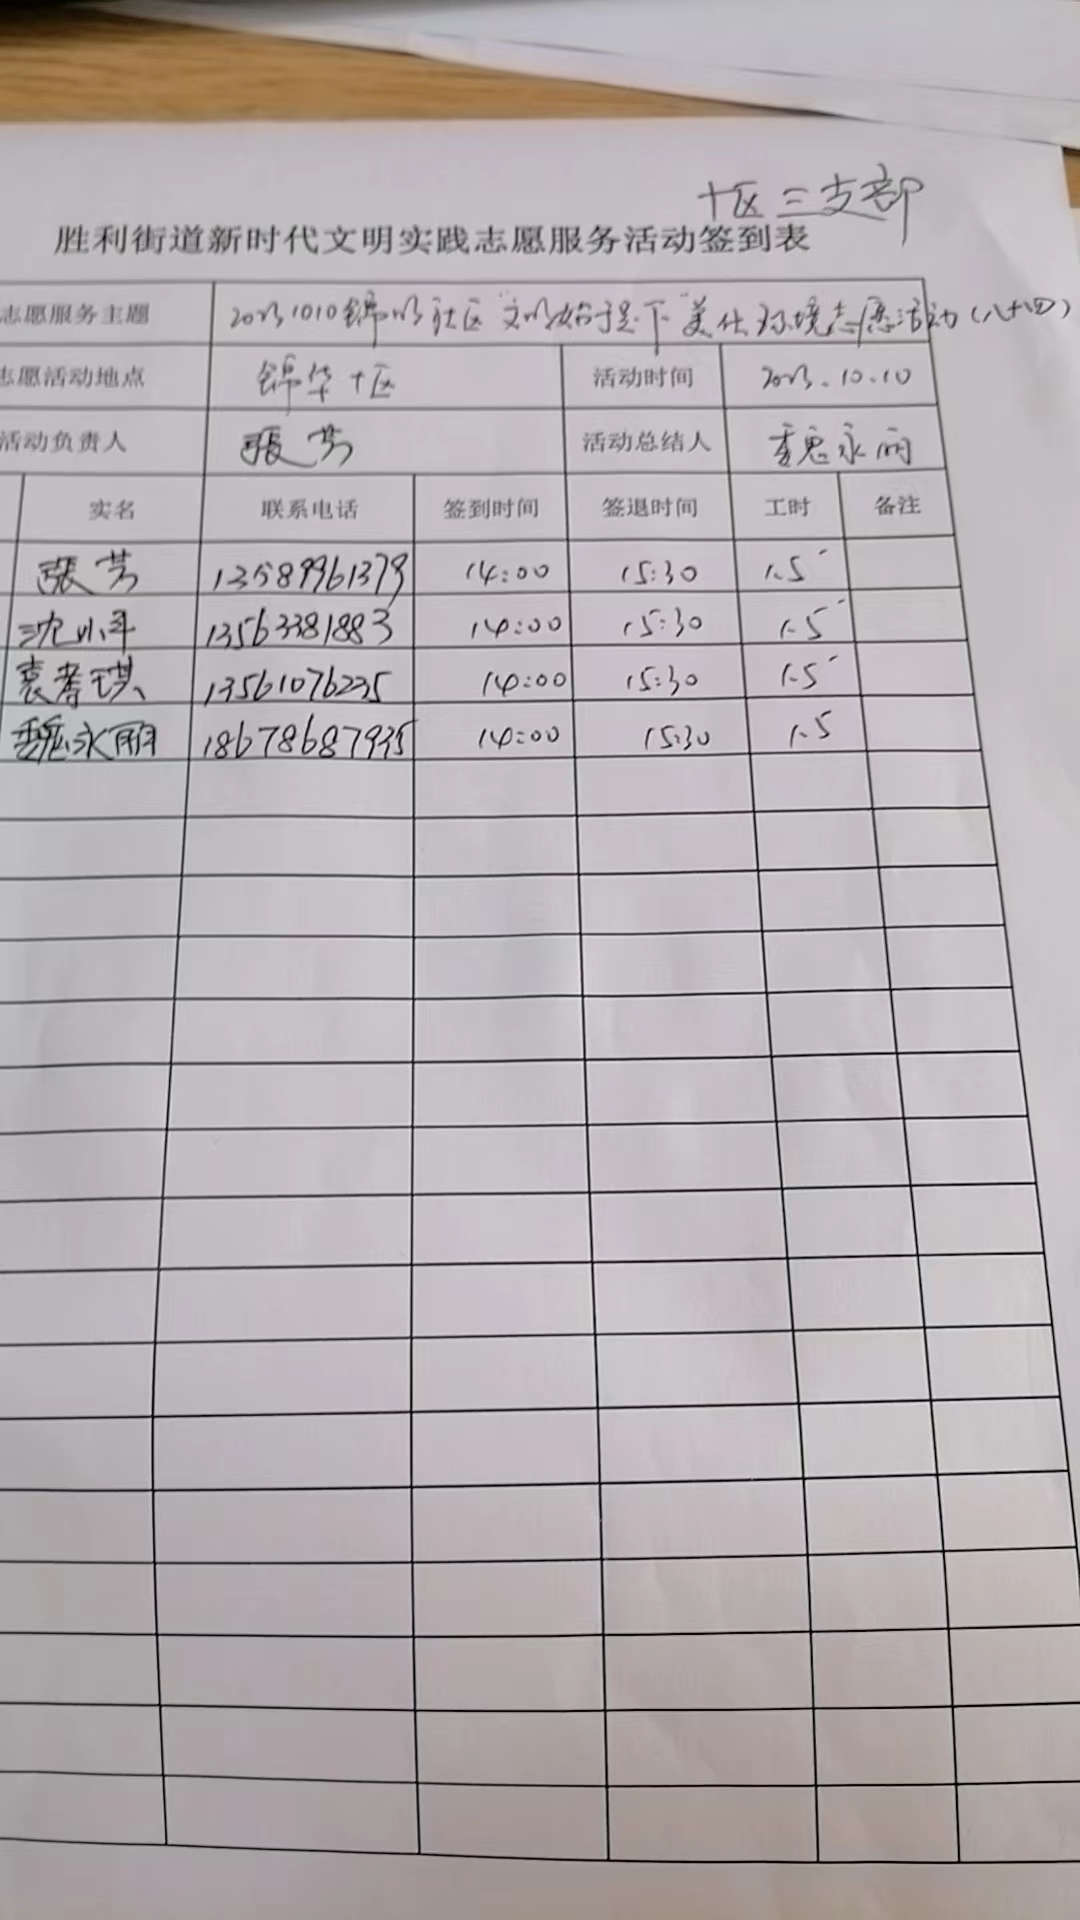 十区三支部
胜利街道新时代文明实践志愿服务活动签到表
志愿服务主题 20231010锦华社区"文明始于足下"美化环境志愿活动(八十四)
志愿活动地点 锦华十区 活动时间 2023.10.10
活动负责人 張芳 活动总结人 魏永丽
实名 联系电话 签到时间 签退时间 工时 备注
張芳 13589961379 14:00 15:30 1.5
沈小平 13563381883 14:00 15:30 1.5
袁孝琪 13561076235 14:00 15:30 1.5
魏永丽 18678687935 14:00 15:30 1.5